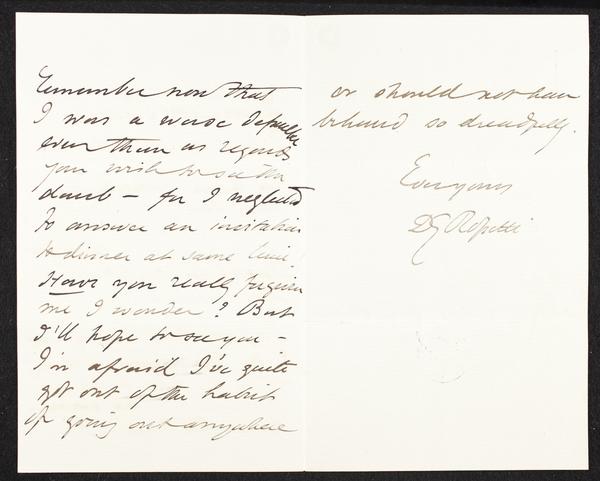 remember now that
I was a worse defaulter
even then as regards
your wish to see the
daub — for I neglected
to answer an invitation
to dinner at same time!
Have you really forgiven
me I wonder? But
I'll hope to see you —
I'm afraid I've quite
got out of the habit
of going out anywhere
or should not have
behaved so dreadfully.
Ever yours
DG Rossetti